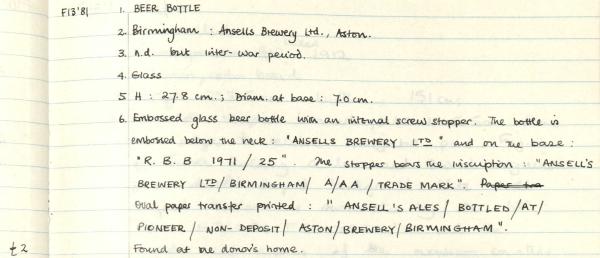 F13'81 1. BEER BOTTLE
2. Birmingham : Ansells Brewery Ltd., Aston.
3. n.d. but inter-war period.
4. Glass
5. H : 27.8 cm. ; Diam. at base : 7.0 cm.
6. Embossed glass beer bottle with an internal screw stopper. The bottle is
embossed below the neck : "ANSELLS BREWERY LTD" and on the base :
"R. B. B 1971 / 25". The stopper bears the inscription : "ANSELL'S
BREWERY LTD / BIRMINGHAM / A/AA / TRADE MARK". Paper tra
Oval paper transfer printed : "ANSELL'S ALES / BOTTLED / AT /
PIONEER / NON-DEPOSIT / ASTON / BREWERY / BIRMINGHAM".
£2 Found at the donor's home.